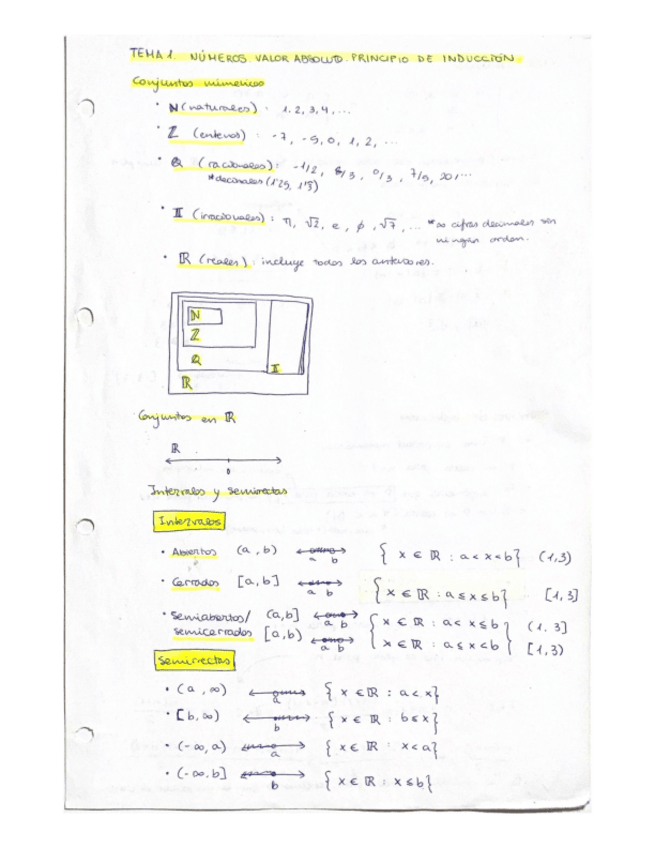 TEMA 1. NÚMEROS VALOR ABSOLUTO. PRINCIPIO DE INDUCCIÓN
Conjuntos numericos
• ℕ (naturales) : 1, 2, 3, 4, ...
• ℤ (enteros) : -7, -5, 0, 1, 2, ...
• ℚ (racionales) : -1/2, 8/3, 0/3, 7/9, 20, ...
*decimales (1'25, 1'3)
• 𝕀 (irracionales) : π, √2, e, ϕ, √7, ... *∞ cifras decimales sin
ningún orden.
• ℝ (reales) : incluye todos los anteriores.
ℕ
ℤ
ℚ
𝕀
ℝ
Conjuntos en ℝ
ℝ
0
Intervalos y semirectas
Intervalos
• Abiertos (a, b) a b { x ∈ ℝ : a < x < b } (1,3)
• Cerrados [a, b] a b { x ∈ ℝ : a ≤ x ≤ b } [1,3]
• Semiabiertos/ (a, b] a b { x ∈ ℝ : a < x ≤ b } (1, 3]
semicerrados [a, b) a b { x ∈ ℝ : a ≤ x < b } [1, 3)
Semirrectas
• (a, ∞) a { x ∈ ℝ : a < x }
• [b, ∞) b { x ∈ ℝ : b ≤ x }
• (-∞, a) a { x ∈ ℝ : x < a }
• (-∞, b] b { x ∈ ℝ : x ≤ b }